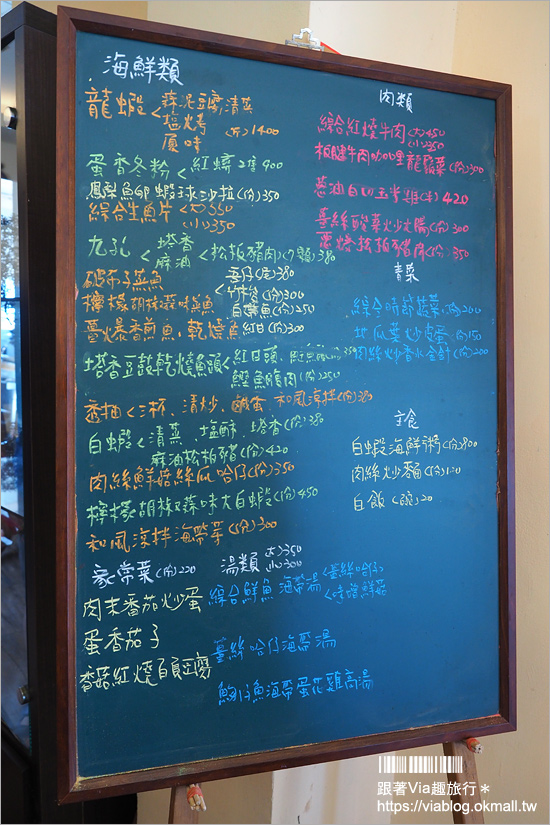 海鮮類
龍蝦<蒜泥豆腐清蒸
塩烤
原味
(斤)1400
蛋香冬粉<紅蟳2隻900
鳳梨魚卵蝦球沙拉(份)350
綜合生魚片<(大)550
(小)350
九孔<塔香
麻油<松板豬肉(7顆)380
破布子蒸魚
檸檬胡椒蒜味魚
薑爆香煎魚,乾燒魚
(份)300
(份)250
紅目(份)300
塔香豆鼓乾燒魚頭<紅目頭
鰹魚腹肉(份)250
透抽<三杯、清炒、鹹蛋、和風涼拌(份)380
白蝦<清蒸、塩酥、塔香(份)380
麻油松板豬(份)420
肉絲鮮蹄絲瓜哈仔(份)350
檸檬胡椒蒜味大白蝦(份)450
和風涼拌海帶芽(份)300
家常菜(份)220
肉末番茄炒蛋
蛋香茄子
香菇紅燒百頁豆腐
湯類(大)350
(小)300
綜合鮮魚海帶湯<薑絲哈仔
味噌鮮菇
薑絲哈仔海帶湯
魩仔魚海帶蛋花雞高湯
肉類
綜合紅燒牛肉(大)450
(小)350
板腱牛肉咖哩龍鬚菜(份)300
蔥油白切玉米雞(半)420
薑絲酸菜炒大腸(份)300
蔥燒松板豬肉(份)350
青菜
綜合時節蔬菜(份)200
地瓜葉炒皮蛋(份)150
肉絲炒香水金針(份)200
主食
白蝦海鮮粥(份)800
肉絲炒麵(份)120
白飯(碗)20
跟著Via趣旅行*
https://viablog.okmall.tw